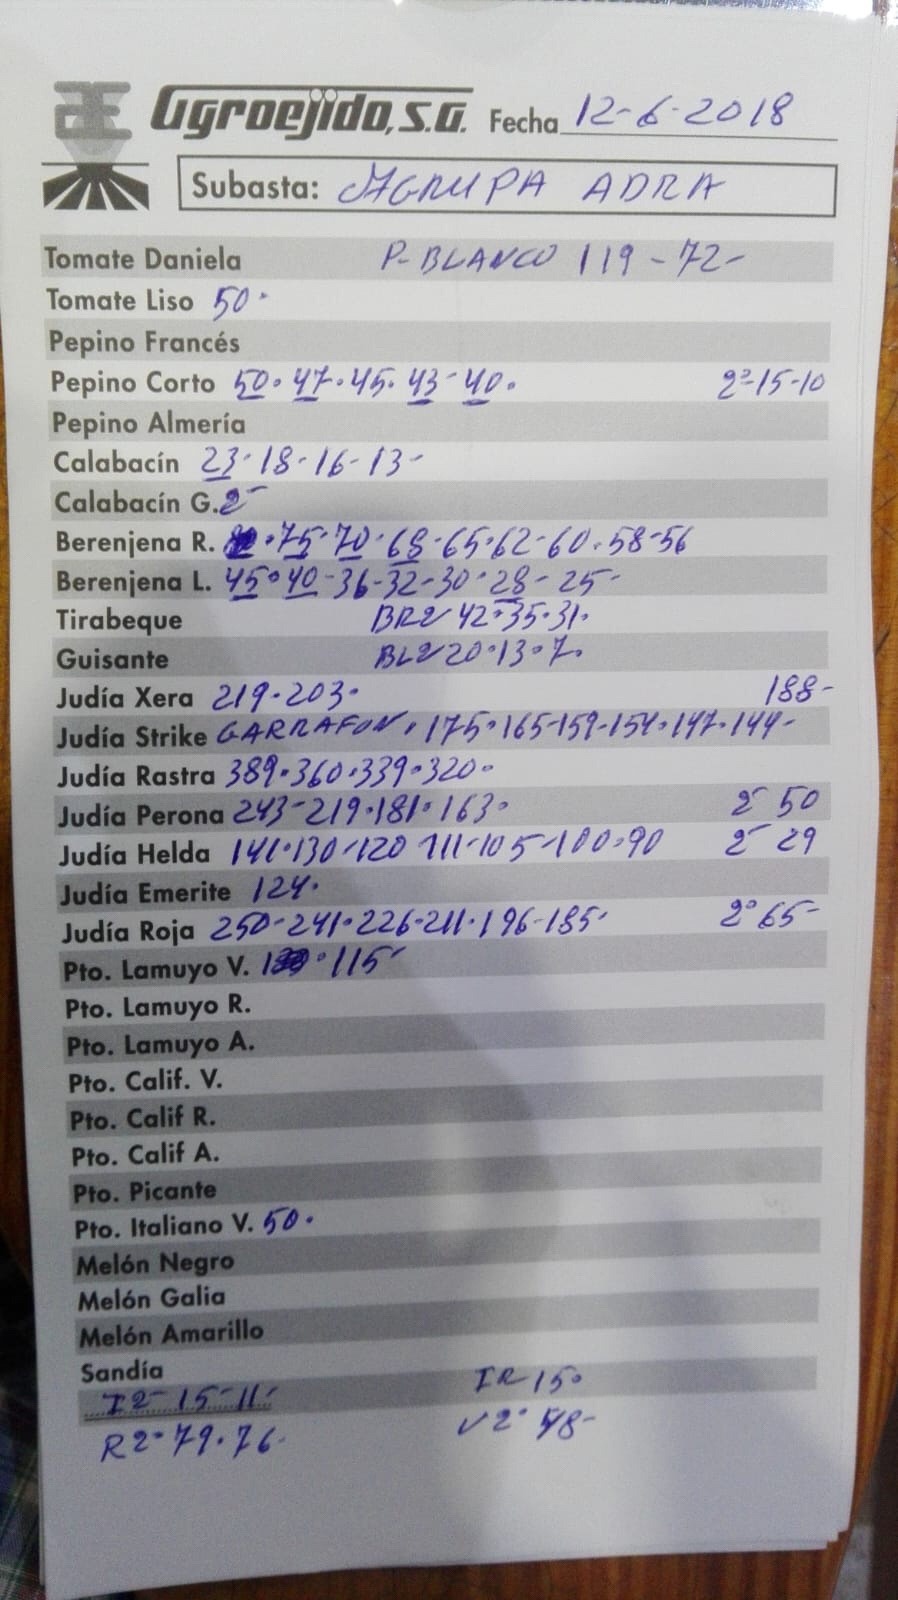 Agroejido, S.A. Fecha 12-6-2018
Subasta: AGRUPA ADRA
Tomate Daniela P-BLANCO 119-72-
Tomate Liso 50.
Pepino Francés
Pepino Corto 50. 47. 45. 43-40. 2ª-15-10
Pepino Almería
Calabacín 23.18.16-13-
Calabacín G. 2-
Berenjena R. .75.70.68-65.62-60.58-56
Berenjena L. 45.40-36-32-30.28-25-
Tirabeque BR2 42.35.31.
Guisante BL2 20.13.7.
Judía Xera 219.203. 188-
Judía Strike GARRAFON. 175.165-159-154.147.144-
Judía Rastra 389.360.339.320.
Judía Perona 243-219.181.163. 2- 50
Judía Helda 141.130-120 111-105-100.90 2- 29
Judía Emerite 124.
Judía Roja 250-241.226.211.196-185. 2º 65-
Pto. Lamuyo V. .115
Pto. Lamuyo R.
Pto. Lamuyo A.
Pto. Calif. V.
Pto. Calif R.
Pto. Calif A.
Pto. Picante
Pto. Italiano V. 50.
Melón Negro
Melón Galia
Melón Amarillo
Sandía
I2- 15-11- IR 15.
R2.79.76. V2. 48-